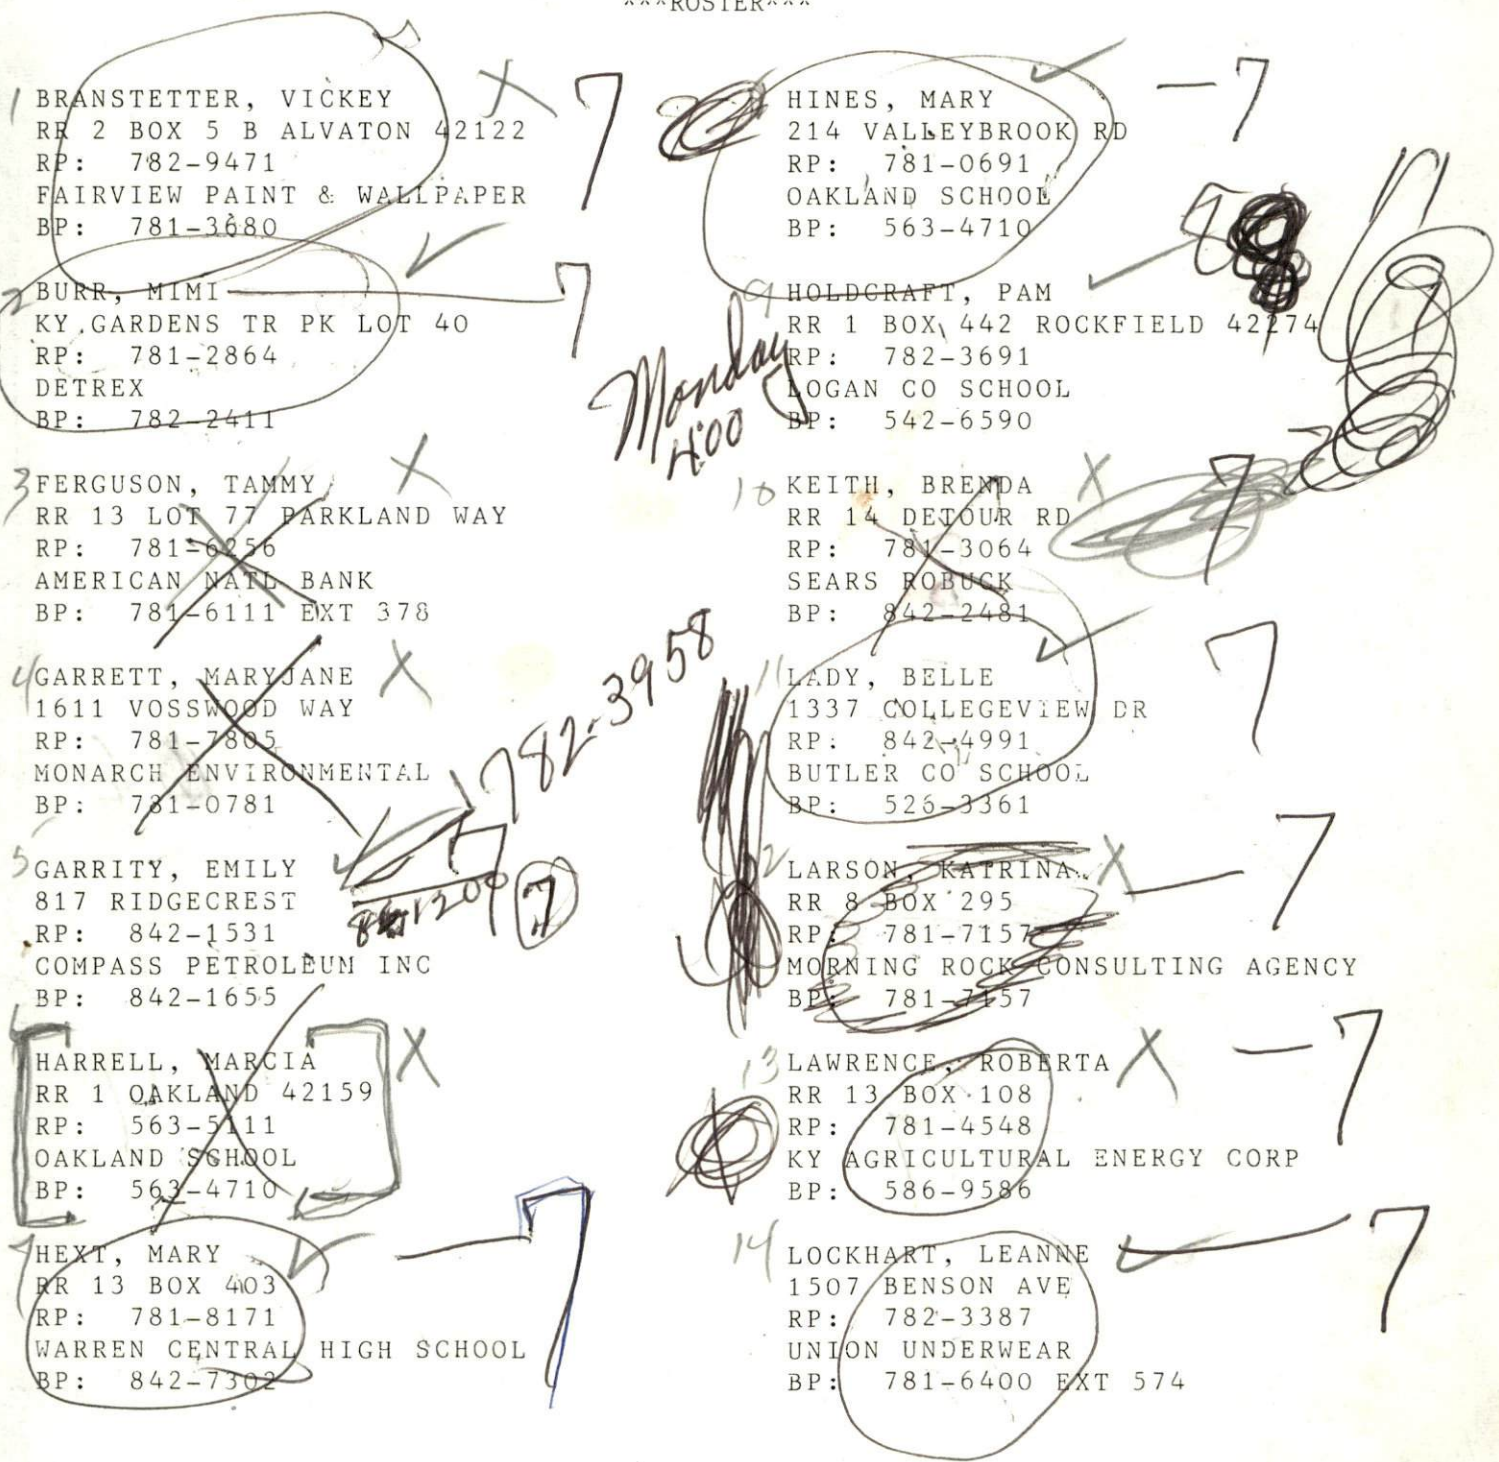 ***ROSTER***
1 BRANSTETTER, VICKEY X 7
RR 2 BOX 5 B ALVATON 42122
RP: 782-9471
FAIRVIEW PAINT & WALLPAPER
BP: 781-3680
2 BURR, MIMI 7
KY GARDENS TR PK LOT 40
RP: 781-2864
DETREX
BP: 782-2411
3 FERGUSON, TAMMY X
RR 13 LOT 77 PARKLAND WAY
RP: 781-6256
AMERICAN NATL BANK
BP: 781-6111 EXT 378
4 GARRETT, MARYJANE X
1611 VOSSWOOD WAY
RP: 781-7805
MONARCH ENVIRONMENTAL
BP: 781-0781
782-3958
5 GARRITY, EMILY 7
817 RIDGECREST 7
RP: 842-1531
COMPASS PETROLEUM INC
BP: 842-1655
HARRELL, MARCIA X
RR 1 OAKLAND 42159
RP: 563-5111
OAKLAND SCHOOL
BP: 563-4710
7 HEXT, MARY 7
RR 13 BOX 403
RP: 781-8171
WARREN CENTRAL HIGH SCHOOL
BP: 842-7302
HINES, MARY -7
214 VALLEYBROOK RD
RP: 781-0691
OAKLAND SCHOOL
BP: 563-4710
9 HOLDCRAFT, PAM
RR 1 BOX 442 ROCKFIELD 42274
RP: 782-3691
LOGAN CO SCHOOL
BP: 542-6590
Monday
4:00
10 KEITH, BRENDA X 7
RR 14 DETOUR RD
RP: 781-3064
SEARS ROBUCK
BP: 842-2481
11 LADY, BELLE 7
1337 COLLEGEVIEW DR
RP: 842-4991
BUTLER CO SCHOOL
BP: 526-3361
12 LARSON, KATRINA X 7
RR 8 BOX 295
RP: 781-7157
MORNING ROCK CONSULTING AGENCY
BP: 781-7157
13 LAWRENCE, ROBERTA X -7
RR 13 BOX 108
RP: 781-4548
KY AGRICULTURAL ENERGY CORP
BP: 586-9586
14 LOCKHART, LEANNE 7
1507 BENSON AVE
RP: 782-3387
UNION UNDERWEAR
BP: 781-6400 EXT 574